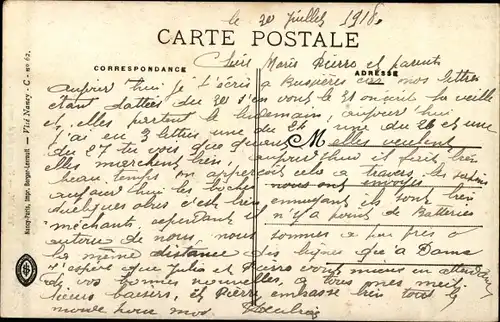 le 30 Juillet 1918.
CARTE POSTALE
Chère Marie Pierre et parents
CORRESPONDANCE
ADRESSE
aujour'hui je t'écris a nos lettres
étant dattées du 30 s'en vont le 31 on écrit la veille
et elles partent le lendemain, aujour d'hui
j'ai eu 3 lettres une du 24 une du 26 et une
du 27 tu vois que quand elles veulent
elles marchent bien, aujourd'hui il fait très
beau temps on apperçoit cela a travers les sapins
aujourd'hui les boches nous ont envoyés
quelques obus c'est bien ennuyant ils sont bien
méchants cependant il n'y a point de Batteries
autour de nous, nous sommes a peu près a
la même distance des lignes qu'a Dom
j'espère que Julia et Pierre vont mieux en attendant
de vos bonnes nouvelles, a tous mes meil-
leurs baisers, et Pierre embrasse bien tout le
monde pour moi
Nancy-Paris, Impr. Berger-Levrault — Visé Nancy - C - no 62.